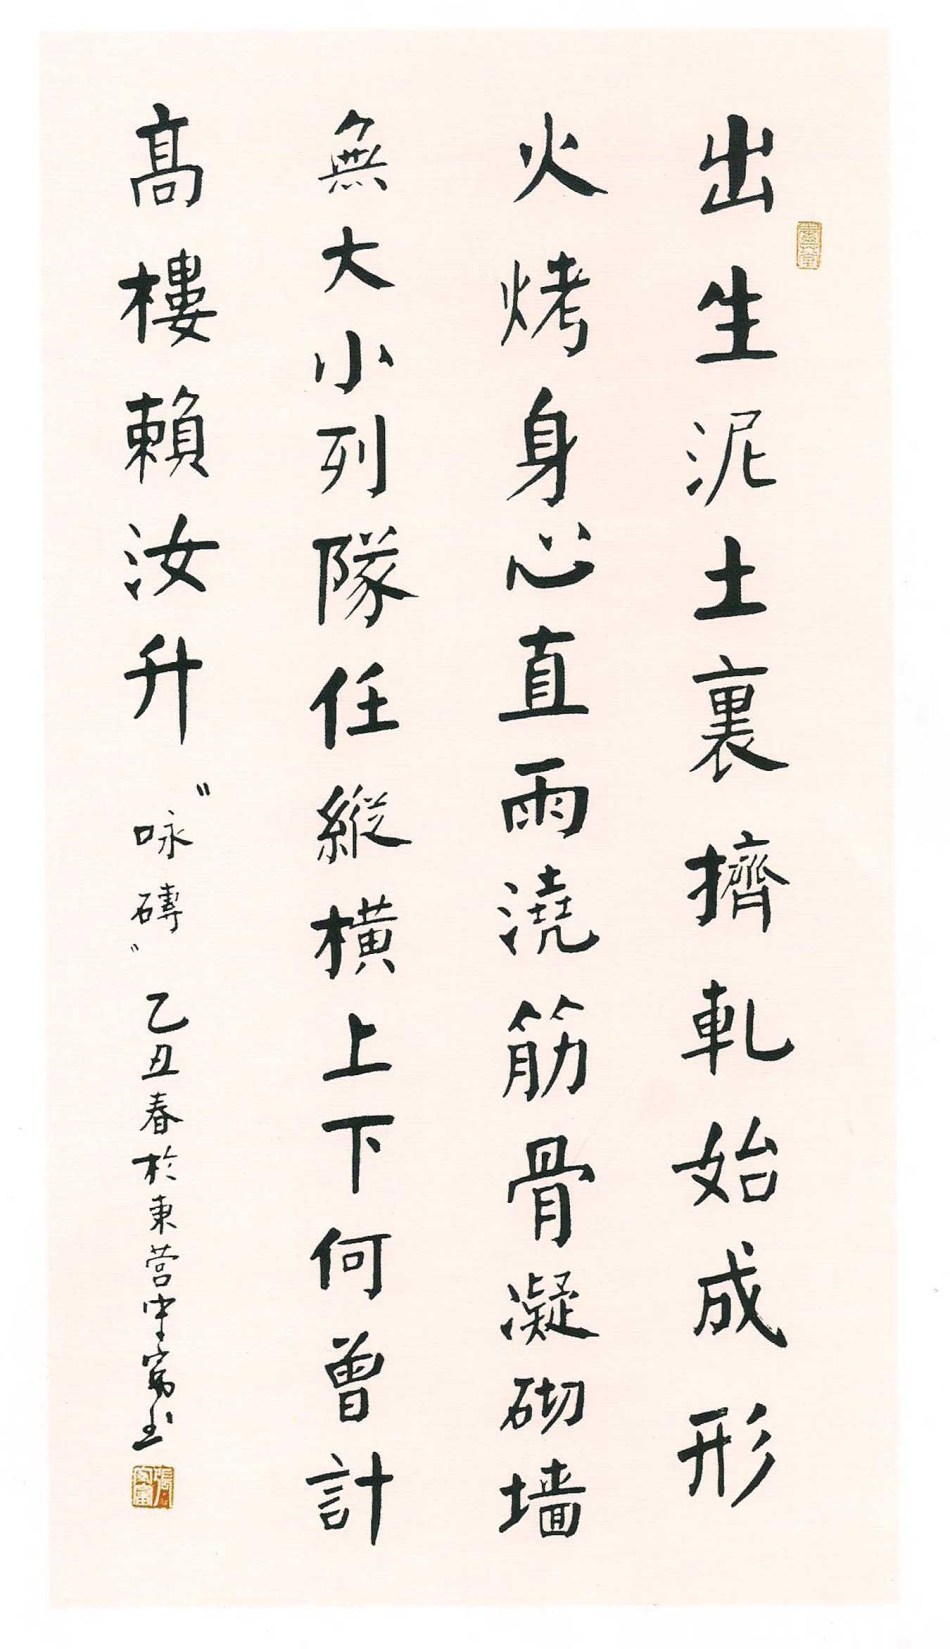 出生泥土裏擠軋始成形
火烤身心直雨澆筋骨凝砌墙
無大小列隊任縱橫上下何曾計
高樓賴汝升 "咏磚" 乙丑春於東營